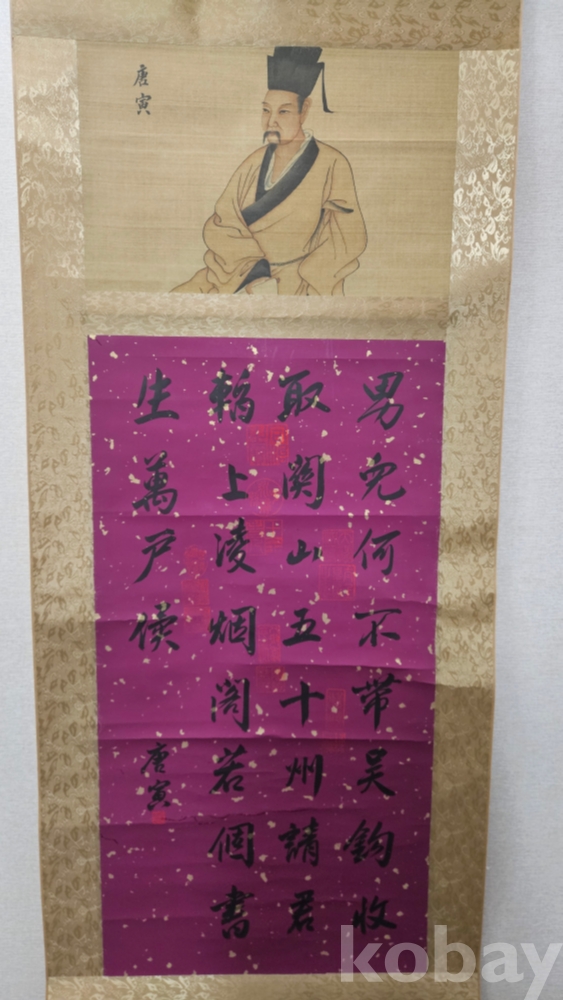 唐寅
男兒何不帶吴鈎收
取關山五十州請君
暫上凌烟閣若個書
生萬户侯
唐寅
kobay